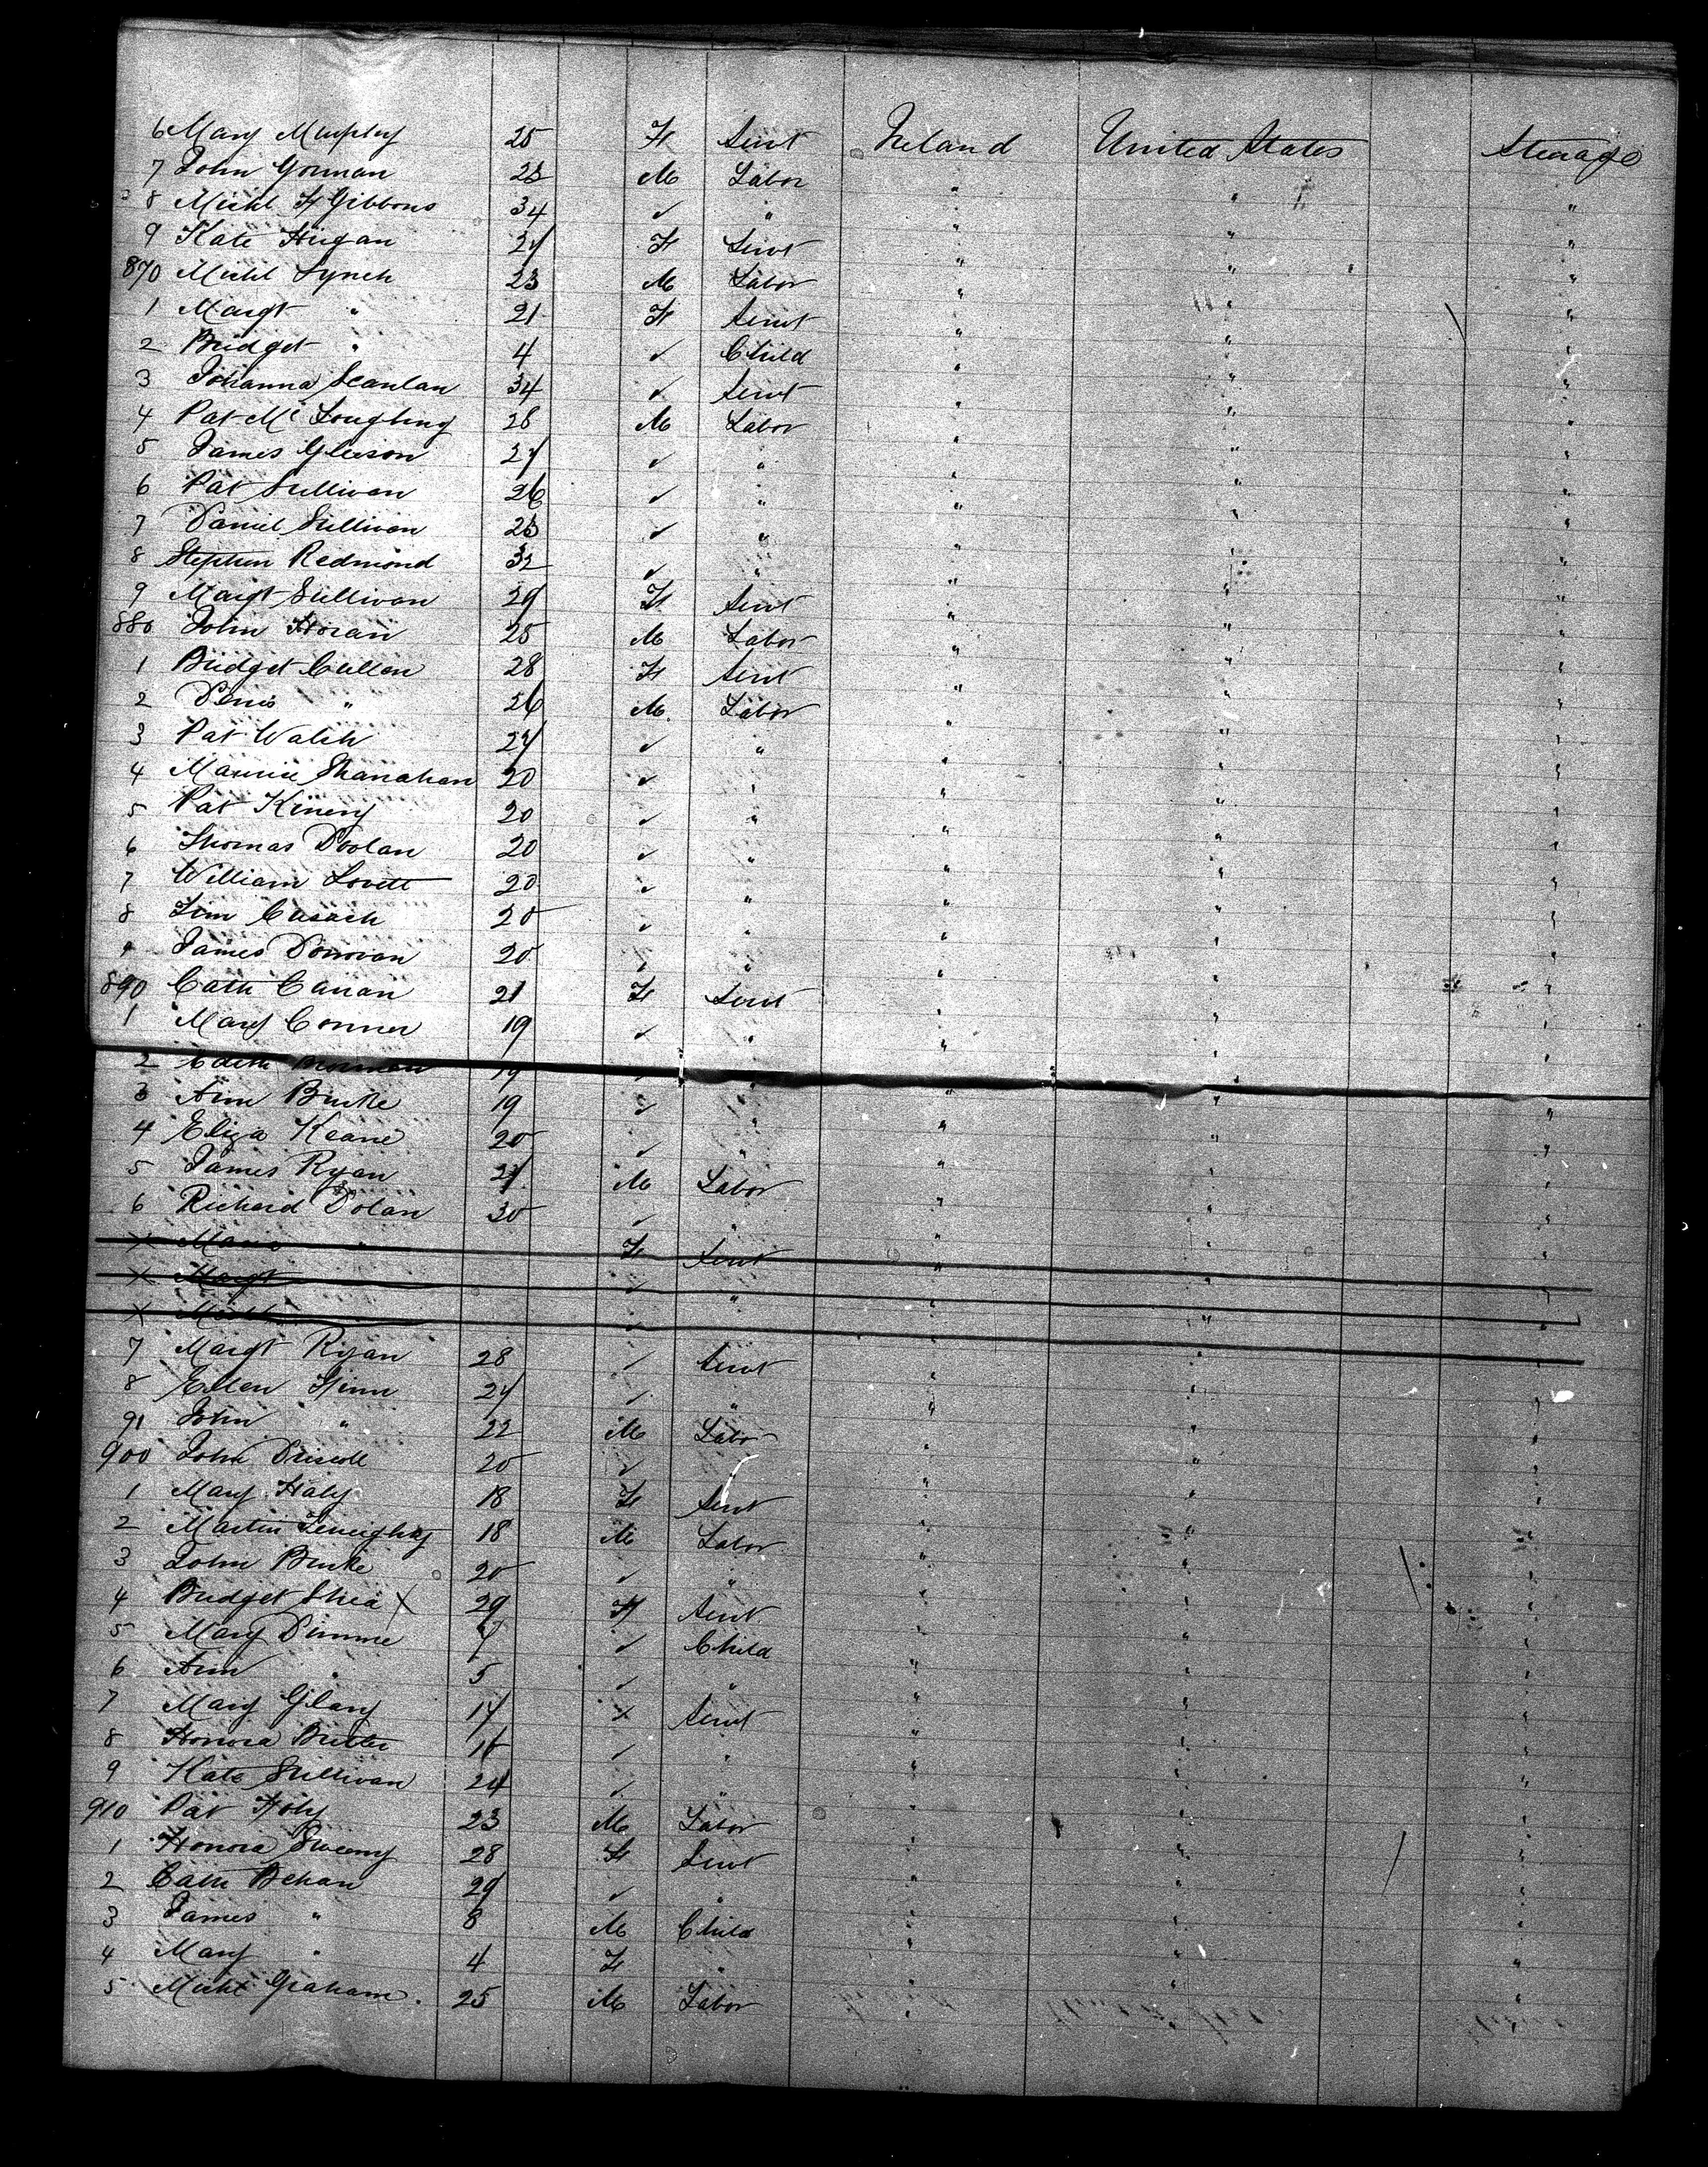 6 Mary Murphy 25 F Servt Ireland United States Steerage
7 John Gorman 23 M Labor " " "
8 Michl F Gibbons 34 ✓ " " " "
9 Kate Hugan 27 F Servt " " "
870 Michl Lynch 23 M Labor " " "
1 Margt " 21 F Servt " " "
2 Bridget " 4 ✓ Child " " "
3 Johanna Scanlan 34 ✓ Servt " " "
4 Pat Mc Loughing 28 M Labor " " "
5 James Gleeson 27 ✓ " " " "
6 Pat Sullivan 26 ✓ " " " "
7 Daniel Sullivan 23 ✓ " " " "
8 Stephen Redmond 32 ✓ " " " "
9 Margt Sullivan 29 F Servt " " "
880 John Horan 25 M Labor " " "
1 Bridget Cullen 28 F Servt " " "
2 Denis " 26 M Labor " " "
3 Pat Walsh 27 ✓ " " " "
4 Maurice Shanahan 20 ✓ " " " "
5 Pat Kineny 20 ✓ " " " "
6 Thomas Doolan 20 ✓ " " " "
7 William Lovett 20 ✓ " " " "
8 Tim Cusack 20 ✓ " " " "
9 James Donovan 20 ✓ " " " "
890 Cath Canan 21 F Servt " " "
1 Mary Conner 19 ✓ " " " "
2 19 ✓ " " " "
3 Ann Burke 19 ✓ " " " "
4 Eliza Keane 20 ✓ " " " "
5 James Ryan 21 M Labor " " "
6 Richard Dolan 30 ✓ " " " "
X Maria " F Servt " " "
X Margt ✓ " " " "
X ✓ " " "
7 Margt Ryan 28 ✓ Servt " " "
8 Ellen Finn 27 ✓ " " " "
91 John " 22 M Labor " " "
900 John Driscoll 20 ✓ " " "
1 Mary Haly 18 F Servt " " "
2 Martin 18 M Labor " " "
3 John Burke 20 ✓ " " " "
4 Bridget Shea X 29 F Servt " " "
5 Mary Dimme 7 ✓ Child " " "
6 Ann " 5 ✓ " " " "
7 Mary Glany 17 X Servt " " "
8 Honora Butler 16 ✓ " " " "
9 Kate Sullivan 24 ✓ " " " "
910 Pat Foly 23 M Labor " " "
1 Honora Sweeny 28 F Servt " " "
2 Cath Behan 29 ✓ " " " "
3 James " 8 M Child " " "
4 Mary " 4 F " " " "
5 Michl Graham. 25 M Labor " " "